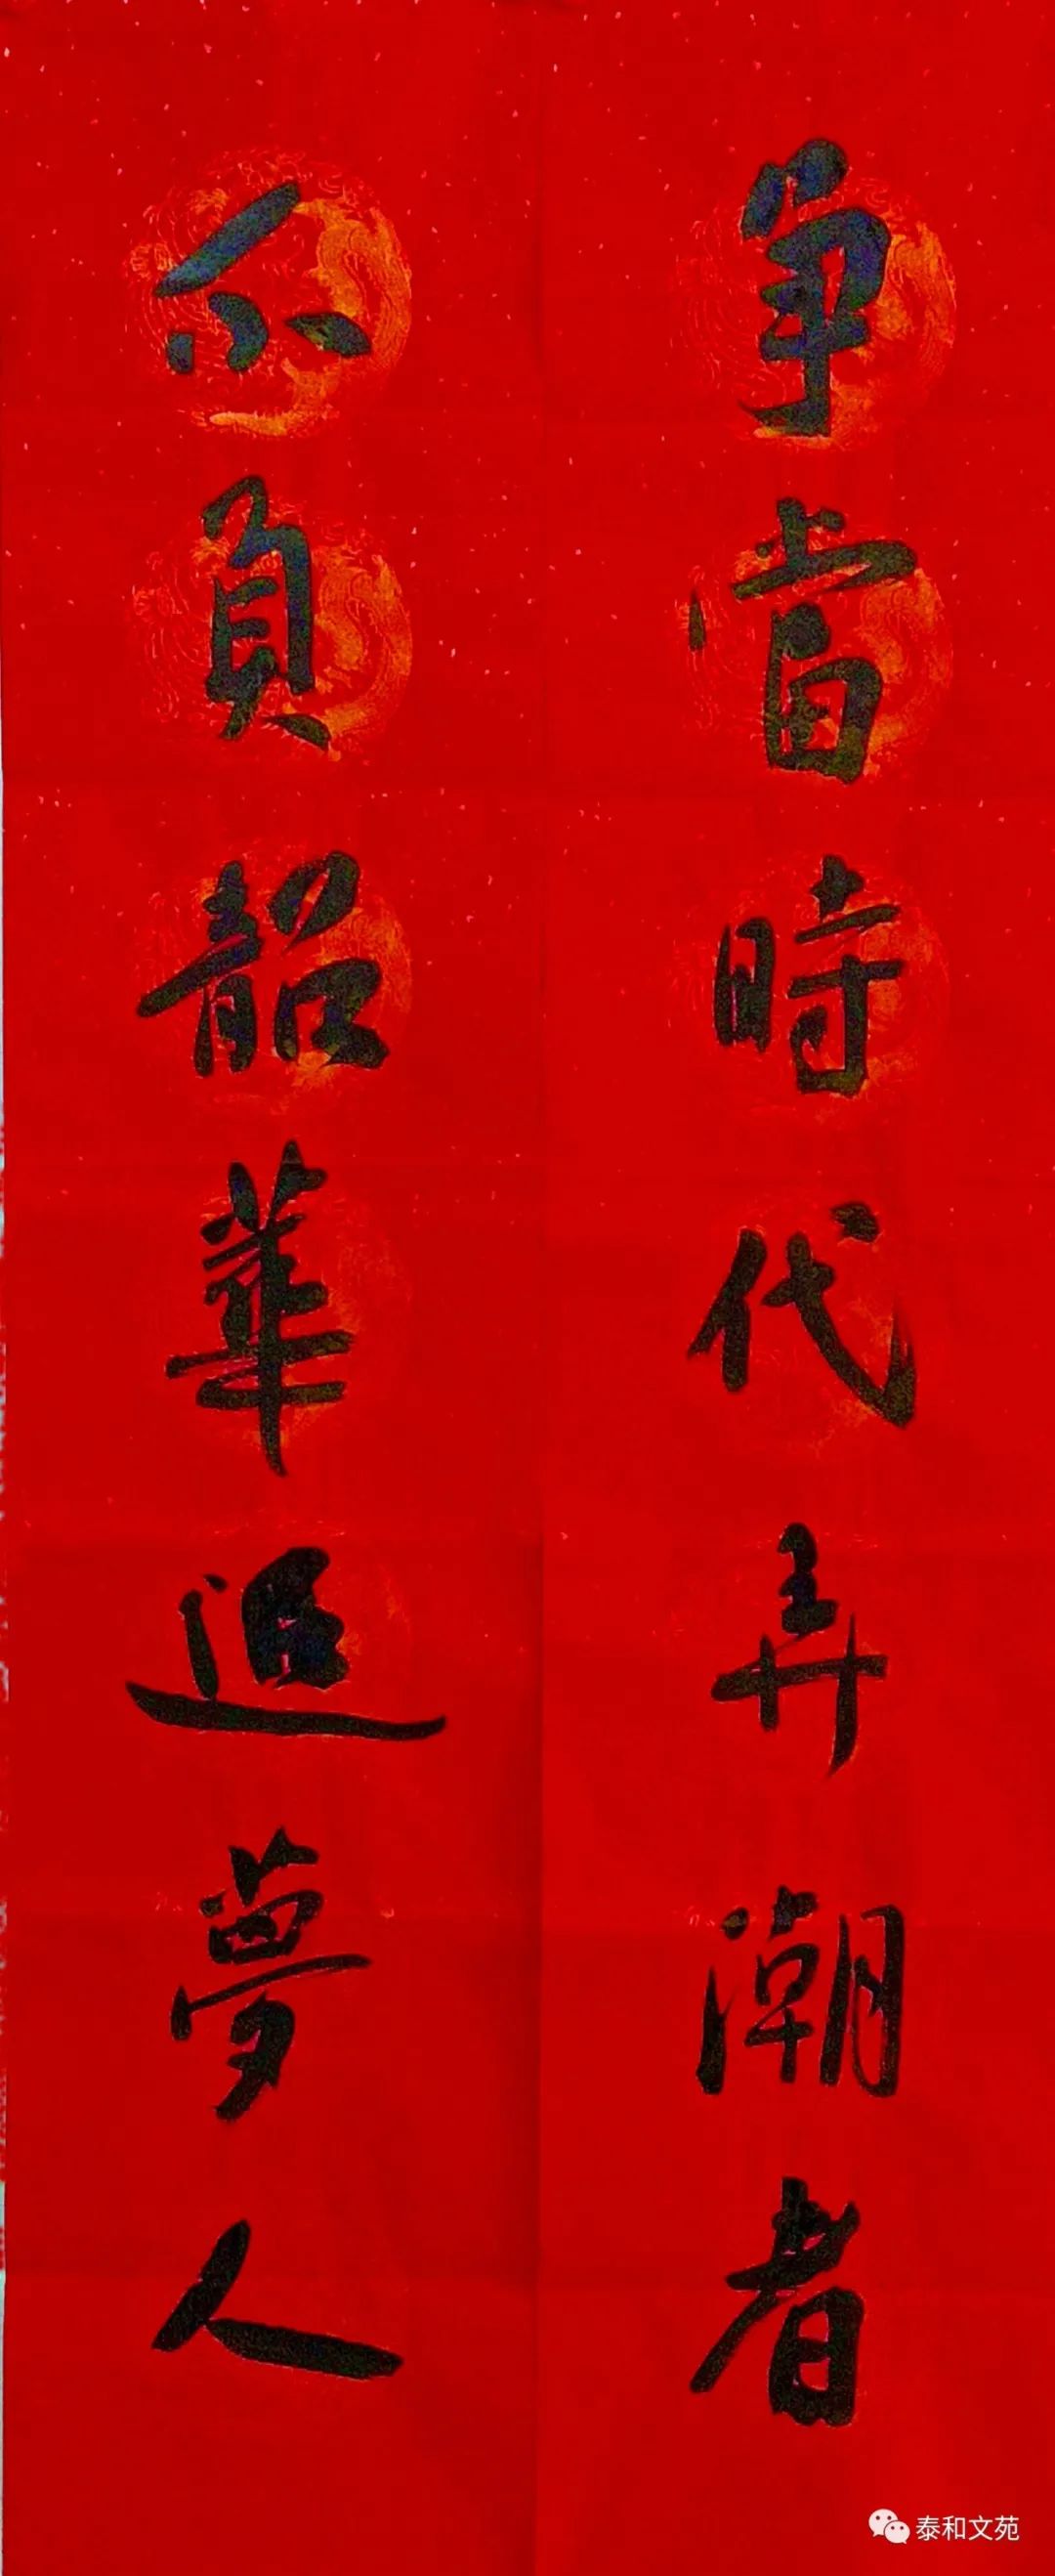 争當時代弄潮者
不負韶華追夢人
泰和文苑